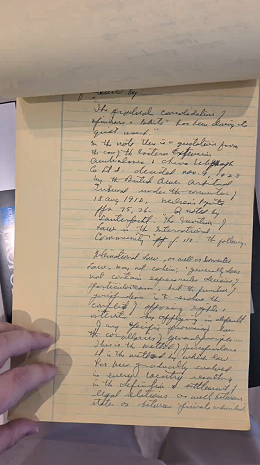 The gradual consolidation of
opinions & habits" has been doing its
quiet work."
In the note there is a quotation from
the case of the Eastern Extension
Australasia & China Telegraph
Co Ltd. decided Nov. 9, 1923
by the British Amer. Arbitral
Tribunal under the
18 Aug 1910, Nielsen's Reports
pp. 75, 76. Quoted by
Lauterpacht, The Function of
Law in the International
Community" p. 110. The following.
International law, as well as domestic
law, may not contain, & generally does
not contain express rules decisive of
particular cases; but the function of
jurisprudence is to resolve the
conflict of opposing rights &
interests by applying, in default
of any specific provision of law
the corollaries of general principles
This is the method of jurisprudence
it is the method by which law
has been gradually evolved
in every country resulting
in the definition & settlement of
legal relations as well between
states as between private individuals